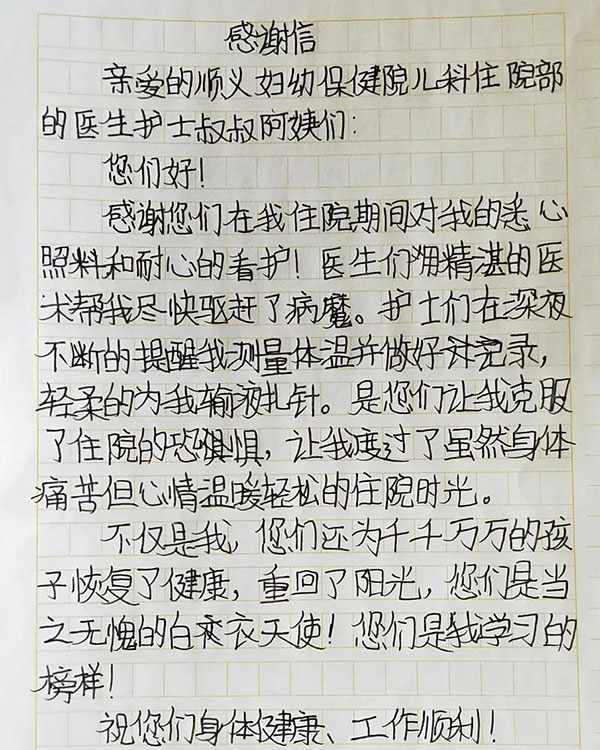 感谢信
亲爱的顺义妇幼保健院儿科住院部
的医生护士叔叔阿姨们:
您们好!
感谢您们在我住院期间对我的悉心
照料和耐心的看护!医生们用精湛的医
术帮我尽快驱赶了病魔。护士们在深夜
不断的提醒我测量体温并做好记录,
轻柔的为我输液扎针。是您们让我克服
了住院的恐惧,让我度过了虽然身体
痛苦但心情温暖轻松的住院时光。
不仅是我,您们还为千千万万的孩
子恢复了健康,重回了阳光,您们是当
之无愧的白衣天使!您们是我学习的
榜样!
祝您们身体健康、工作顺利!